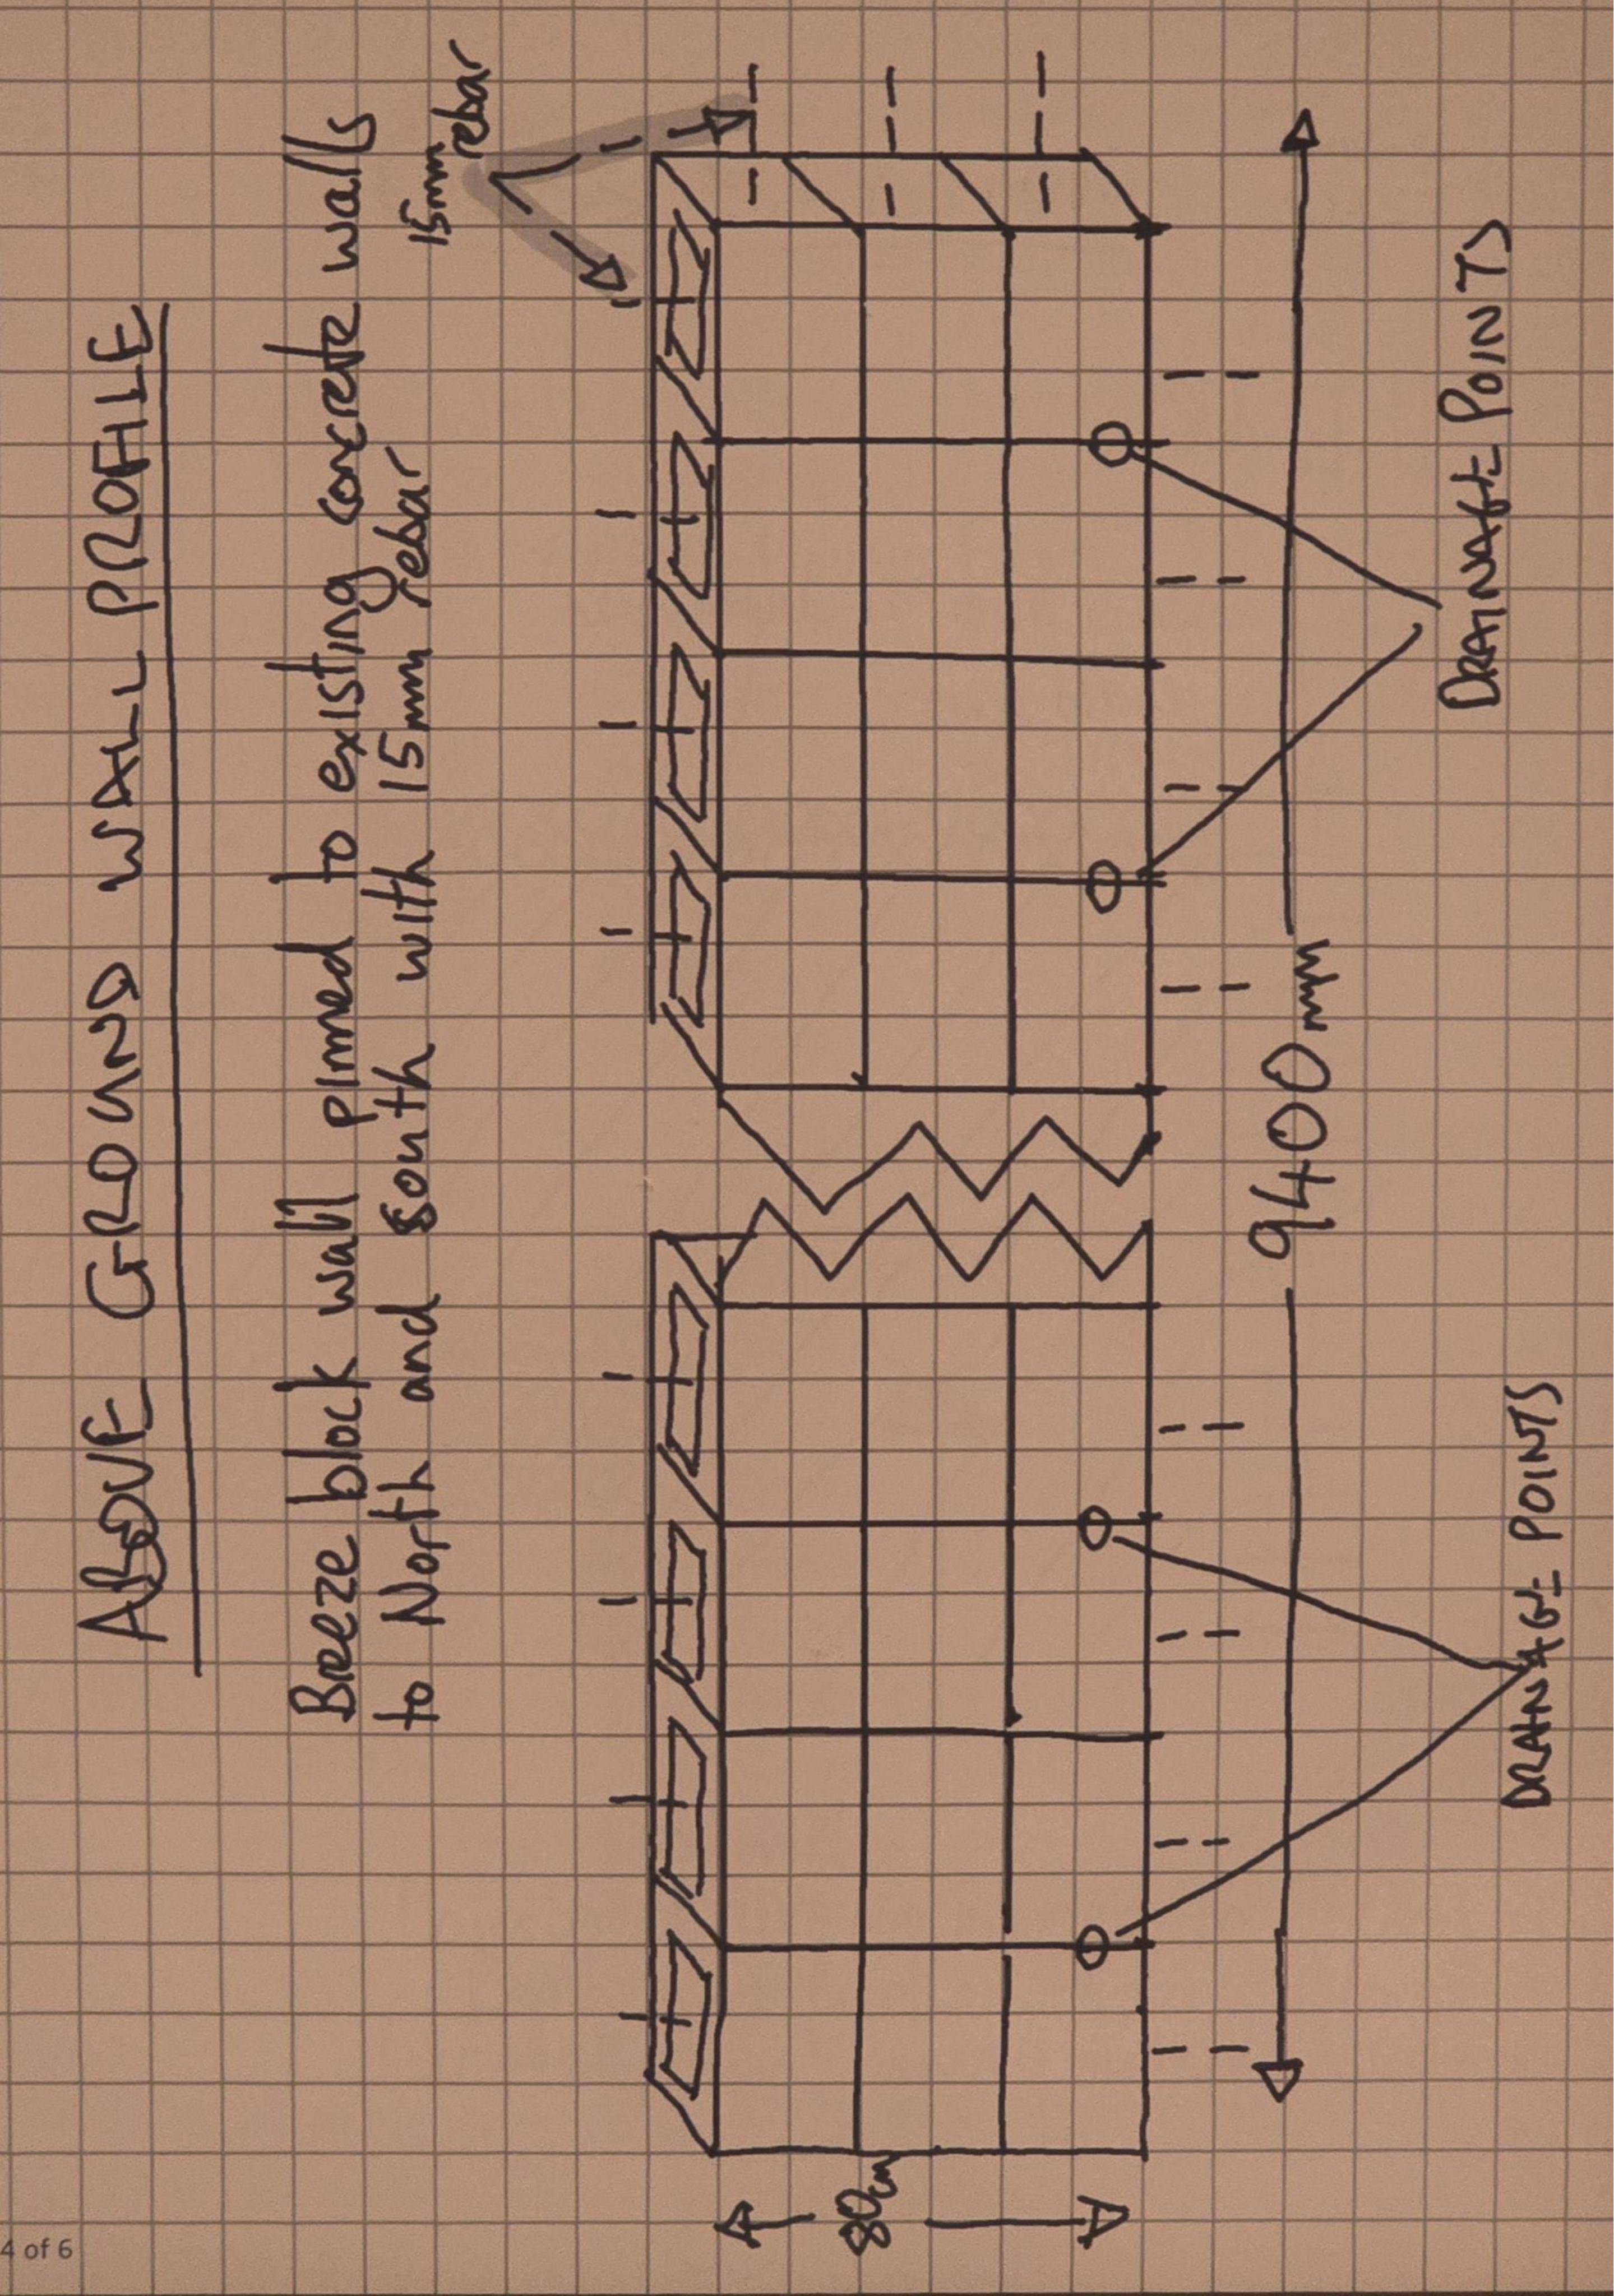 ABOVE GROUND WALL PROFILE
Breeze block wall pinned to existing concrete walls
to North and South with 15mm rebar
15mm rebar
80cm
9400mm
DRAINAGE POINTS
DRAINAGE POINTS
4 of 6